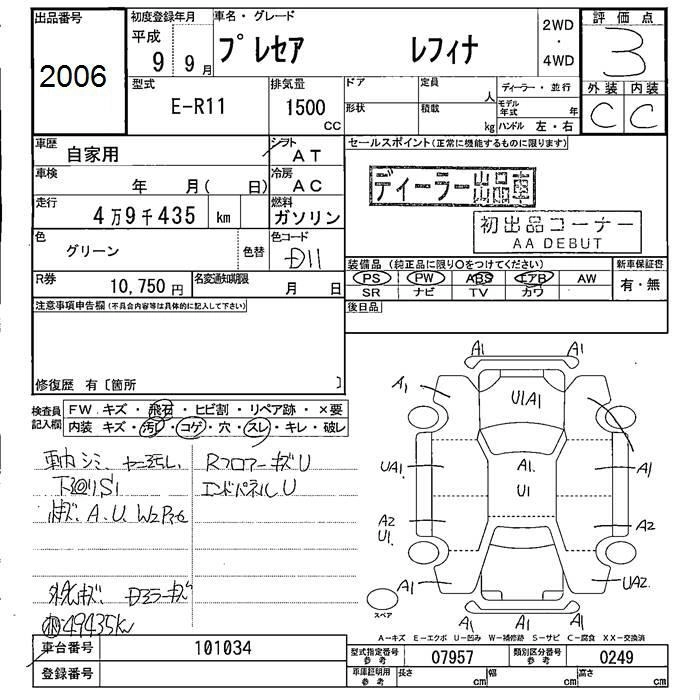 出品番号
2006
初度登録年月
平成
9 9月
車名・グレード
プレセア レフィナ
2WD
・
4WD
評価点
3
型式
E-R11
排気量
1500
CC
ドア
形状
定員
人
積載
kg
ディーラー・並行
モデル年式 年
ハンドル 左・右
外装 内装
C C
車歴
自家用
シフト
AT
車検
年 月( 日)
冷房
AC
走行
4万9千435 km
燃料
ガソリン
色
グリーン
色替
色コード
D11
R券
10,750円
名変通知期限
月 日
セールスポイント(正常に機能するものに限ります)
ディーラー出品車
初出品コーナー
AA DEBUT
装備品(純正品に限り○をつけてください)
PS PW ABS エアB AW
SR ナビ TV カワ
新車保証書
有・無
注意事項申告欄(不具合内容等は具体的に記入して下さい)
後日品
修復歴 有〔箇所 〕
検査員
記入欄
FW キズ・飛石・ヒビ割・リペア跡・×要
内装 キズ・汚れ・コゲ・穴・スレ・キレ・破レ
下回りS1
RフロアーキズU
エンドパネルU
A.U.
Dミラーキズ
49435km
A1 A1
A1
U1A1
UA1
A1.
U1
A1
A2
U1.
A2
A1
UA2.
A1 A1
スペア
A-キズ E-エクボ U-凹み W-補修跡 S-サビ C-腐食 XX-交換済
車台番号
101034
登録番号
型式指定番号
参考
07957
類別区分番号
参考
0249
車庫証明用
参考
長さ cm 幅 cm 高さ cm